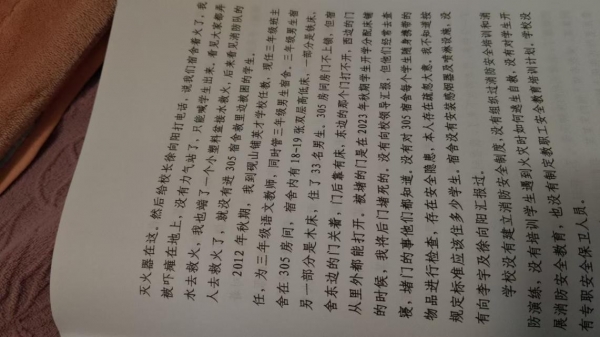 灭火器在这。然后给校长徐向阳打电话，说我们宿舍着火了，我
被吓瘫在地上，没有力气站了，只能喊学生出来，看见大家都弄
水去救火，我也端了一个小塑料盆接水救火，后来看见消防队的
人去救火了，就没有进305宿舍救里边被困的学生。
2012年秋期，我到砚山铺英才学校任教，现任三年级班主
任，为三年级语文教师，同时管三年级男生宿舍。三年级男生宿
舍在305房间，宿舍内有18-19张双层高低床，一部分是铁床，
另一部分是木床，住了33名男生。305房间房门不上锁，但宿
舍东边的门关着，门后靠有床，东边的那个门打不开，西边的门
从里外都能打开。被堵的门是在2023年秋期学生开学分配床铺
的时候，我将后门堵死的，没有向校领导汇报，但他们经常去查
寝，堵门的事他们都知道，没有对305宿舍每个学生随身携带的
物品进行检查，存在安全隐患，本人存在疏忽大意。我不知道按
规定标准应该住多少学生，宿舍没有安装烟烟器及喷淋设施，没
有向李宇及徐向阳汇报过。
学校没有建立消防安全制度，没有组织过消防安全培训和消
防演练，没有培训学生遇到火灾时如何逃生自救，没有对学生开
展消防安全教育，也没有制定教职工安全教育培训计划，学校没
有专职安全保卫人员。